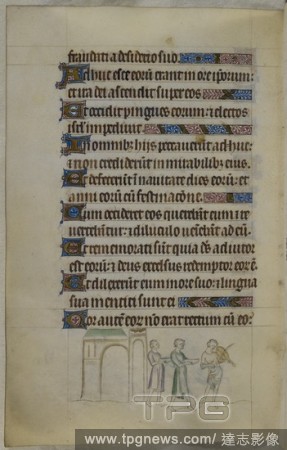 fraudati a desiderio suo.
Adhuc esce eorū erant in ore ip̄orum:
et ira dei ascendit super eos
Et occidit pingues eorum: ⁊ electos
isrl̄ impediuit.
In omnibꝫ hijs peccauerūt adhuc: ⁊
non crediderūt in mirabilibꝫ eius.
Et defecerūt ī uanitate dies eorū: et
anni eorū cum festinac̄one.
Cum occideret eos querebāt eum: ⁊ re
uertebātur: ⁊ diluculo ueniebāt ad eū.
Et rememorati sūt quia dē adiutor
est eorū: ⁊ deus excelsus redemptor eor̄ ē.
Et dilexerūt eum in ore suo: ⁊ lingua
sua mentiti sunt ei
Cor autē eor̄ nō erat rectum cū eo:
TPG
www.tpgnews.com/ 達志影像